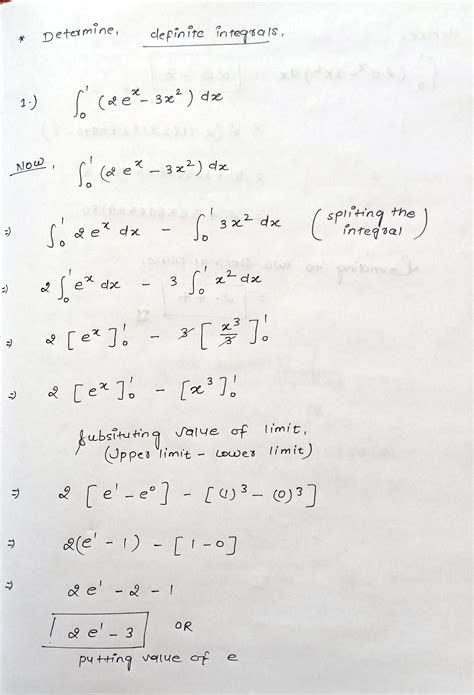 * Determine, definite integrals.
1.) ∫₀¹ (2eˣ - 3x²) dx
Now, ∫₀¹ (2eˣ - 3x²) dx
⇒ ∫₀¹ 2eˣ dx - ∫₀¹ 3x² dx (spliting the integral)
⇒ 2 ∫₀¹ eˣ dx - 3 ∫₀¹ x² dx
⇒ 2 [eˣ]₀¹ - 3 [x³/3]₀¹
⇒ 2 [eˣ]₀¹ - [x³]₀¹
Subsituting value of limit,
(Upper limit - Lower limit)
⇒ 2 [e¹ - e⁰] - [(1)³ - (0)³]
⇒ 2(e¹ - 1) - [1-0]
⇒ 2e¹ - 2 - 1
2e¹ - 3 OR
putting value of e